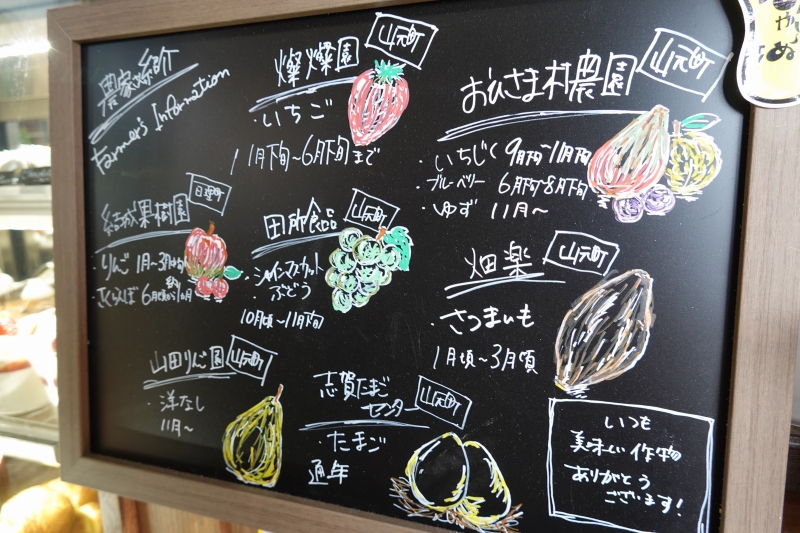 農家紹介
Farmer's Information
燦燦園
山元町
・いちご
1月下旬〜6月下旬まで
おひさま村農園
山元町
・いちじく 9月下旬〜11月下旬
・ブルーベリー 6月下旬〜8月下旬
・ゆず 11月〜
結城果樹園
亘理町
・りんご
・さくらんぼ
田所食品
山元町
・シャインマスカット
ぶどう
10月頃〜11月下旬
畑楽
山元町
・さつまいも
1月頃〜3月頃
山田りんご園
山元町
・洋なし
11月〜
志賀たまご
センター
山元町
・たまご
通年
いつも
美味しい作物
ありがとう
ございます!